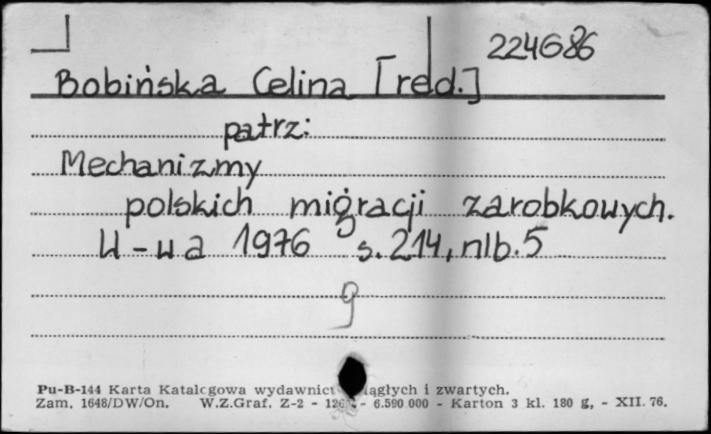 224686
Bobińska Celina [red.]
patrz:
Mechanizmy
polskich migracji zarobkowych.
W-wa 1976 s. 214, nlb. 5
g
Pu-B-144 Karta Katalogowa wydawnict i zwartych.
Zam. 1648/DW/On. W.Z.Graf. Z-2 - 6.590 000 - Karton 3 kl. 180 g, - XII. 76.